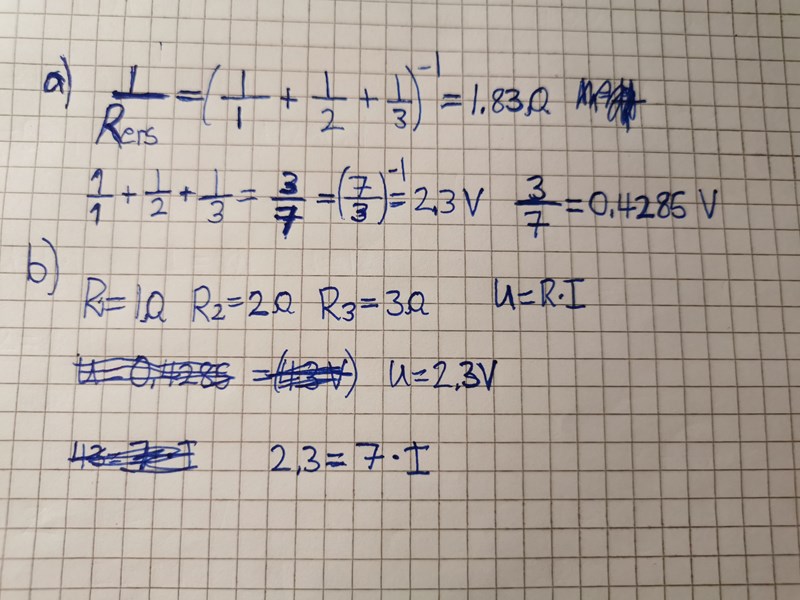 a) 1/Rers = (1/1 + 1/2 + 1/3)^-1 = 1.83Ω
1/1 + 1/2 + 1/3 = 3/7 = (7/3)^-1 = 2,3 V 3/7 = 0,4285 V
b)
R1=1Ω R2=2Ω R3=3Ω U=R·I
U=0,4285 =(43V) U=2,3V
43=7·I 2,3=7·I